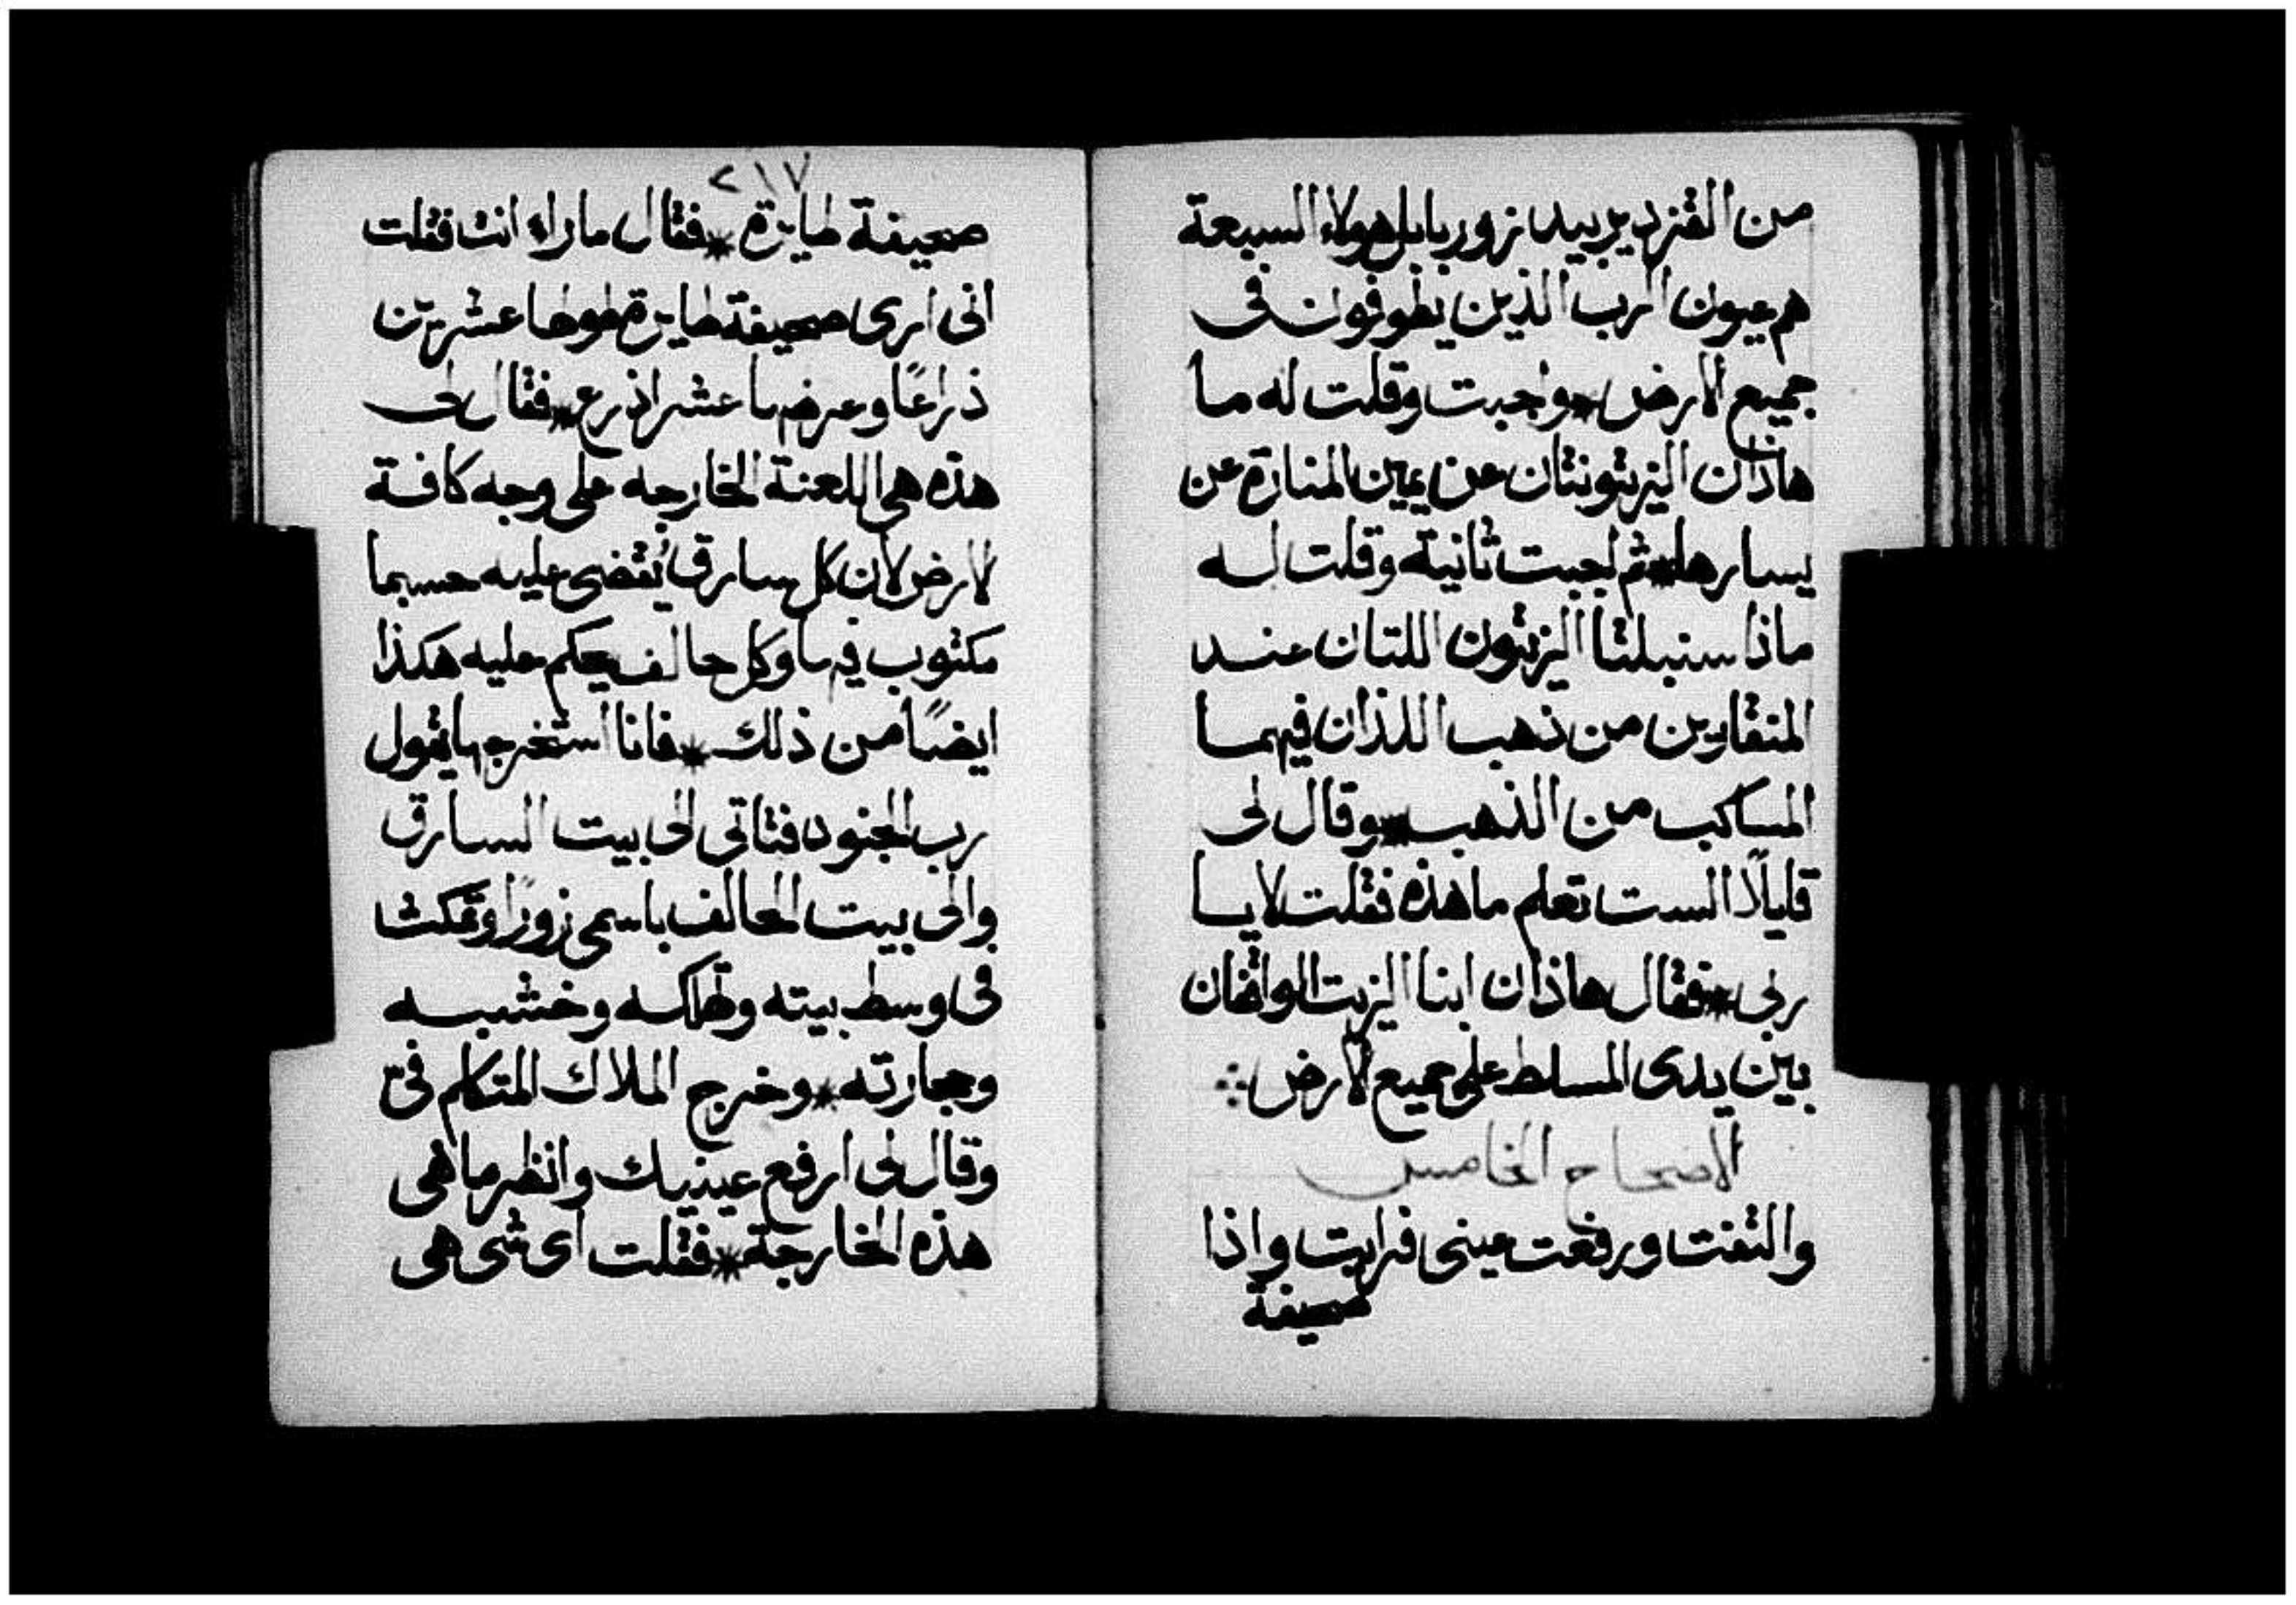 من القزدير بيد زوربابل هولاء السبعة
هم عيون الرب الذين يطوفون في
جميع الارض * واجبت وقلت له ما
هاذان الزيتونتان عن يمين المنارة عن
يسارها * ثم اجبت ثانية وقلت له
ماذا سنبلتا الزيتون اللتان عند
المنقارين من ذهب اللذان فيهما
المساكب من الذهب * وقال لى
قايلًا الست تعلم ما هذه فقلت لا يا
ربى * فقال هاذان ابنا الزيت الواقفان
بين يدى المسلط على جميع الارض ∴
الاضحاح الخامس
والتفت ورفعت عينى فرايت واذا
صحيفة
٢١٧
صحيفة طايرة * فقال ماراء انت فقلت
انى ارى صحيفة طايرة طولها عشرين
ذراعًا وعرضها عشر اذرع * فقال لى
هذه هى اللعنة الخارجه على وجه كافة
الارض لان كل سارق يُقضى عليه حسبما
مكتوب فيها وكل حالف يحكم عليه هكذا
ايضًا من ذلك * فانا استخرجها يقول
رب الجنود فتاتى الى بيت السارق
والى بيت الحالف باسمى زورًا وتمكث
فى وسط بيته وتهلكه وخشبه
وحجارته * وخرج الملاك المتكلم فىّ
وقال لى ارفع عينيك وانظر ما هى
هذه الخارجة * فقلت اى شى هى